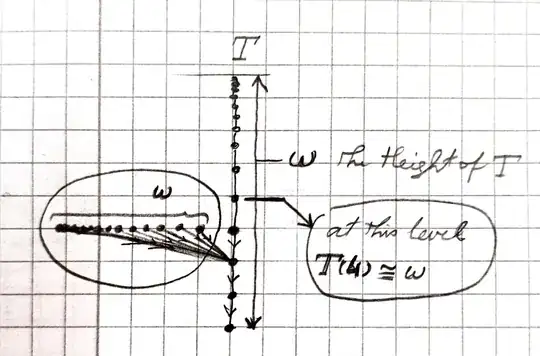 T
ω the Height of T
ω
at this level
T(4) ≅ ω